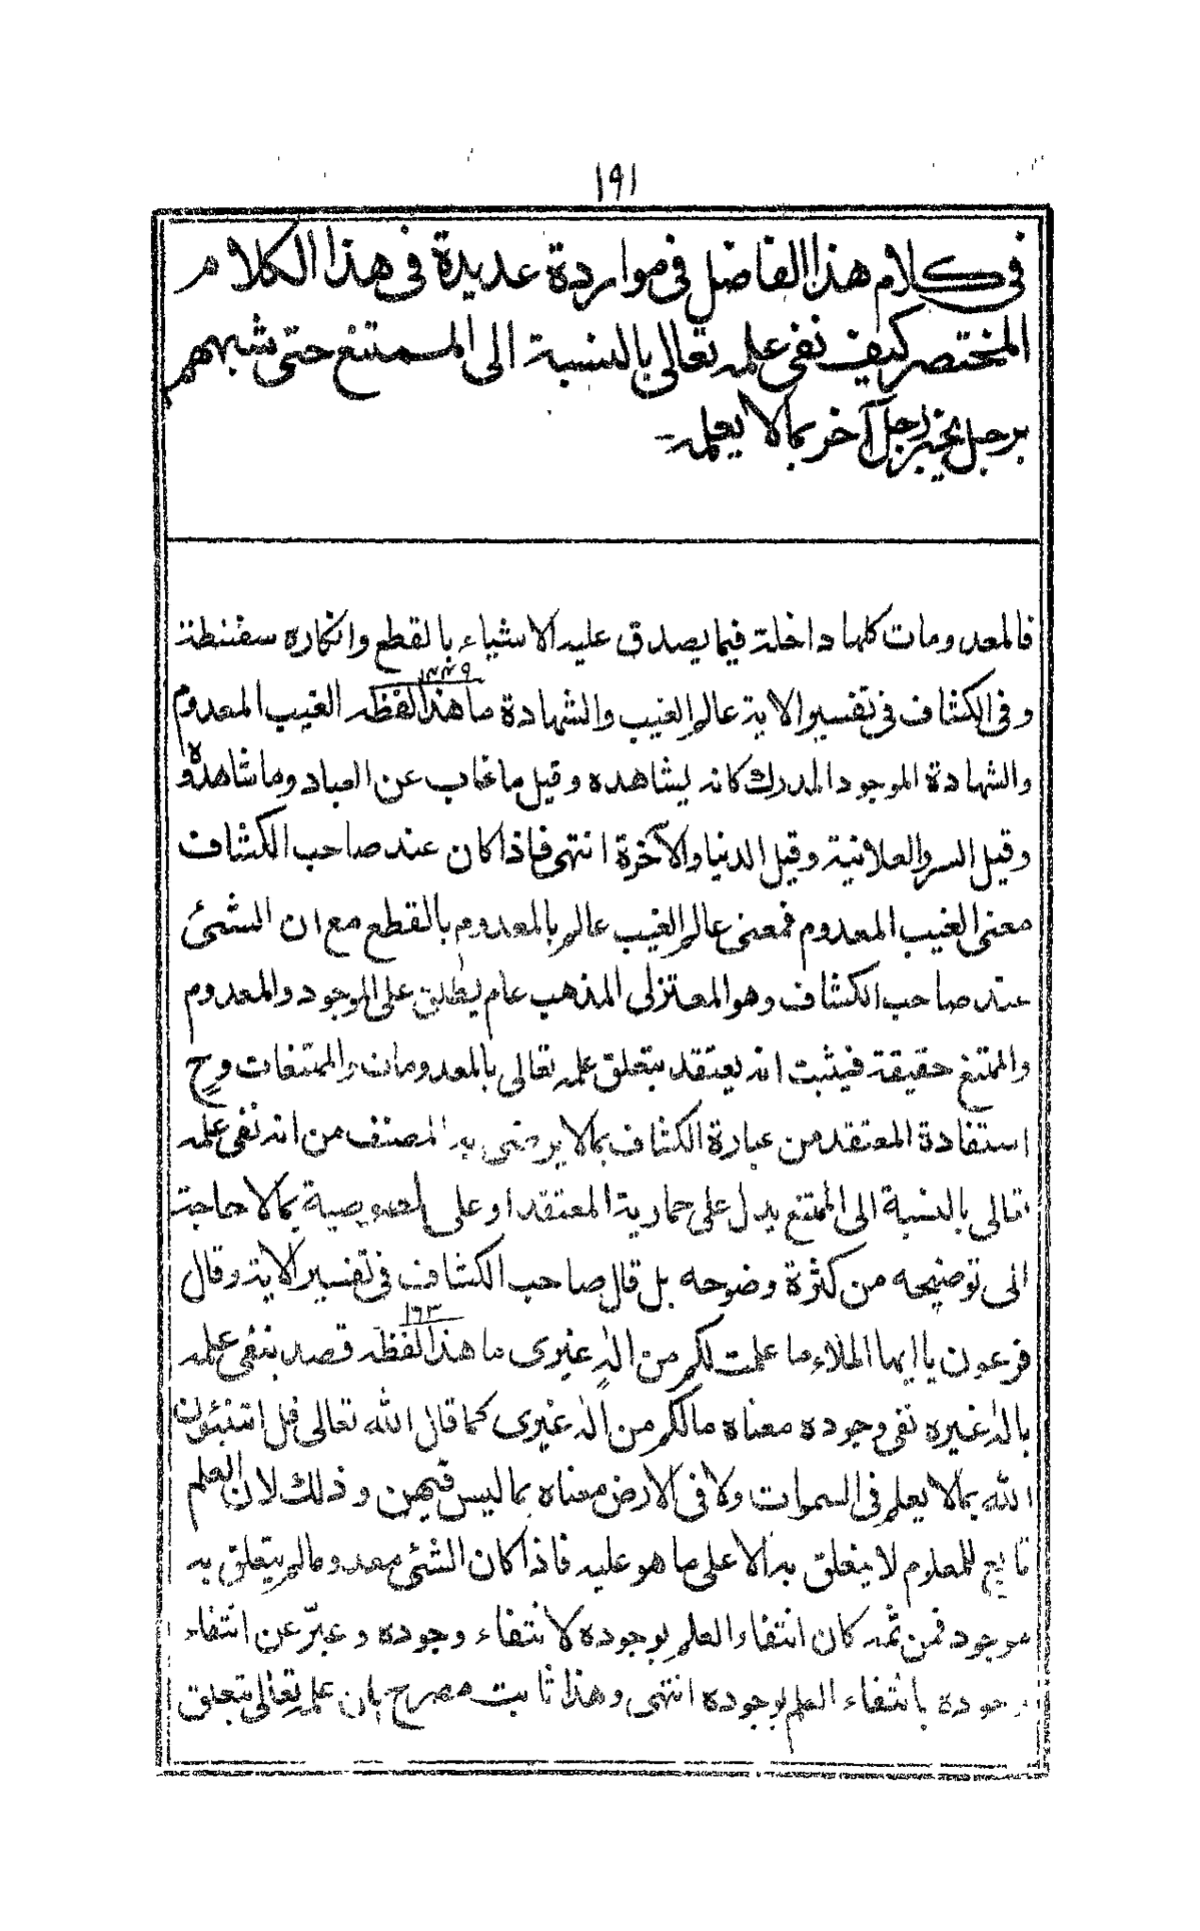 ١٩١
في كلام هذا الفاضل في مواردة عديدة في هذا الكلام
المختصر كيف نفى علمه تعالى بالنسبة الى الممتنع حتى شبههم
برجل يخبر رجل آخر بمالا يعلمه
فالمعدومات كلها داخلة فيما يصدق عليه الاشياء بالقطع وانكاره سفسطة
وفي الكشاف في تفسير الاية عالم الغيب والشهادة ما هذا لفظه الغيب المعدوم
والشهادة الموجود المدرك كانه يشاهده وقيل ما غاب عن العباد وما شاهدوه
وقيل السر والعلانية وقيل الدنيا والآخرة انتهى فاذا كان عند صاحب الكشاف
معنى الغيب المعدوم فمعنى عالم الغيب عالم بالمعدوم بالقطع مع ان الشئ
عند صاحب الكشاف وهو المعتزلى المذهب عام يطلق على الموجود والمعدوم
والممتنع حقيقة فيثبت انه يعتقد بتعلق علمه تعالى بالمعدومات والممتنعات وح
استفادة المعتقد من عبارة الكشاف بمالا يرضى به المصنف من انه نفى علمه
تعالى بالنسبة الى الممتنع يدل على حمارية المعتقد او على بمالا حاجة
الى توضيحه من كثرة وضوحه بل قال صاحب الكشاف في تفسير الاية وقال
١٦٣
فرعون يا ايها الملاء ما علمت لكم من اله غيرى ما هذا لفظه قصد بنفى علمه
باله غيره نفى وجوده معناه مالكم من اله غيرى كما قال الله تعالى قل اتنبئون
الله بمالا يعلم في السموات ولا في الارض معناه بما ليس فيهن وذلك لان العلم
تابع للمعلوم لا يتعلق به الا على ما هو عليه فاذا كان الشئ معدوما لم يتعلق به
موجود فمن ثمه كان انتفاء العلم بوجوده لا نتفاء وجوده وعبر عن انتفاء
وجوده بانتفاء العلم بوجوده انتهى وهذا ثابت مصرح بان علمه تعالى يتعلق